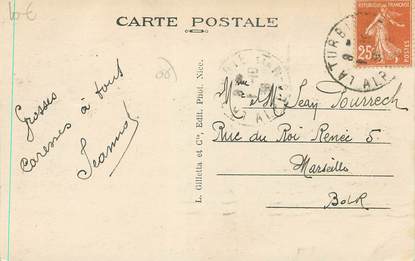 10€
CARTE POSTALE
RÉPUBLIQUE FRANÇAISE
25c
POSTES
LA TURBIE
ALP
Grosses
caresses à tous
Jeannot
L. Gilletta et Cie, Edit. Phot. Nice.
M et Mme Jean Pourrech
Rue du Roi Renée 5
Marseille
BdR